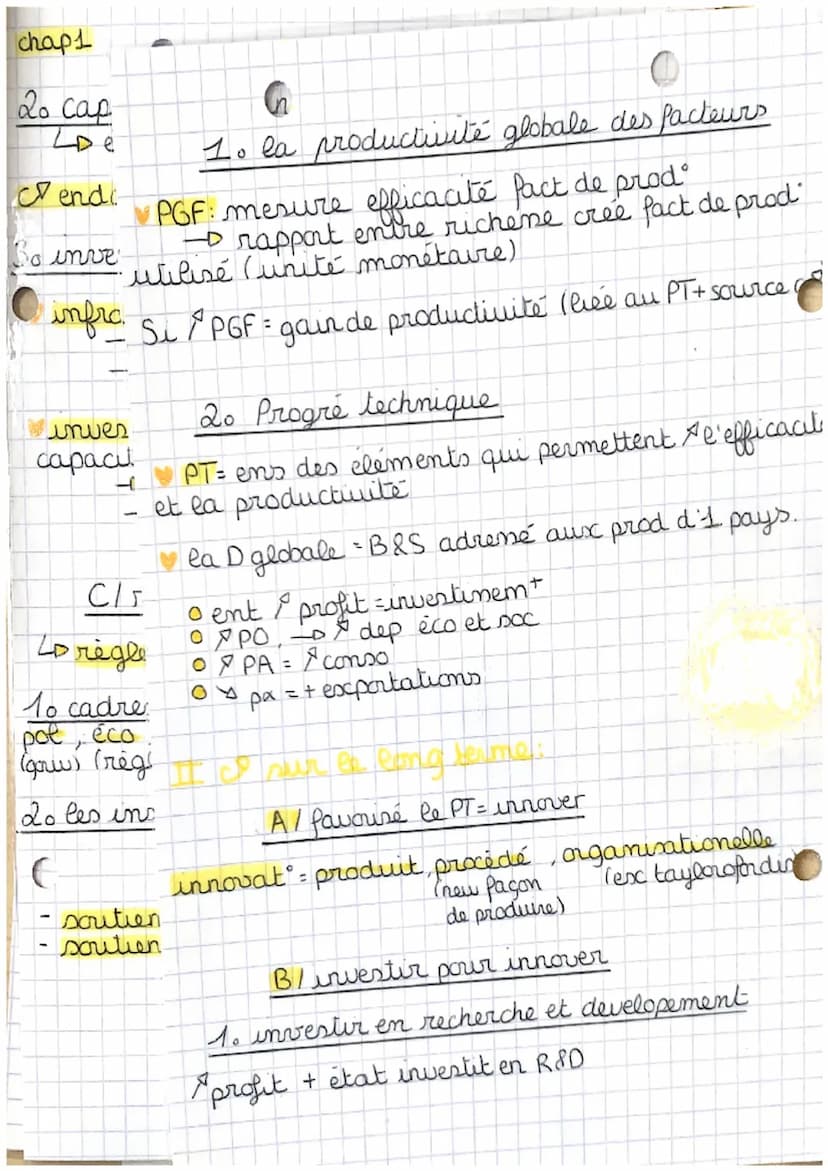 chap1
2. cap
↳ e
1. la productivité globale des facteurs
end
♥ PGF: mesure efficacité fact de prod°
→ rapport entre richesse crée fact de prod°
3. inve
utilisé (unité monétaire)
infra
Si ↗ PGF = gain de productivité (liée au PT + source
2. Progré technique
♥ inves
capacit
♥ PT = ens des éléments qui permettent ↗ l'efficacit
et la productivité
♥ la D globale = B&S adressé aux prod d'1 pays.
C/
ent ↗ profit = investissemt
↗ PO, → ↗ dep éco et soc
↳ règle
↗ PA = ↗ conso
↘ px = + exportations
1. cadre
pol, éco
(gouv) (règl
II sur le long terme:
2. les ins
A/ favorisé le PT = innover
innovat° = produit, procédé, organisationelle
(new façon (ex taylorofordis
de produire)
- soutien
- soutien
B/ investir pour innover
1. investir en recherche et developement
↗ profit + état investit en R&D